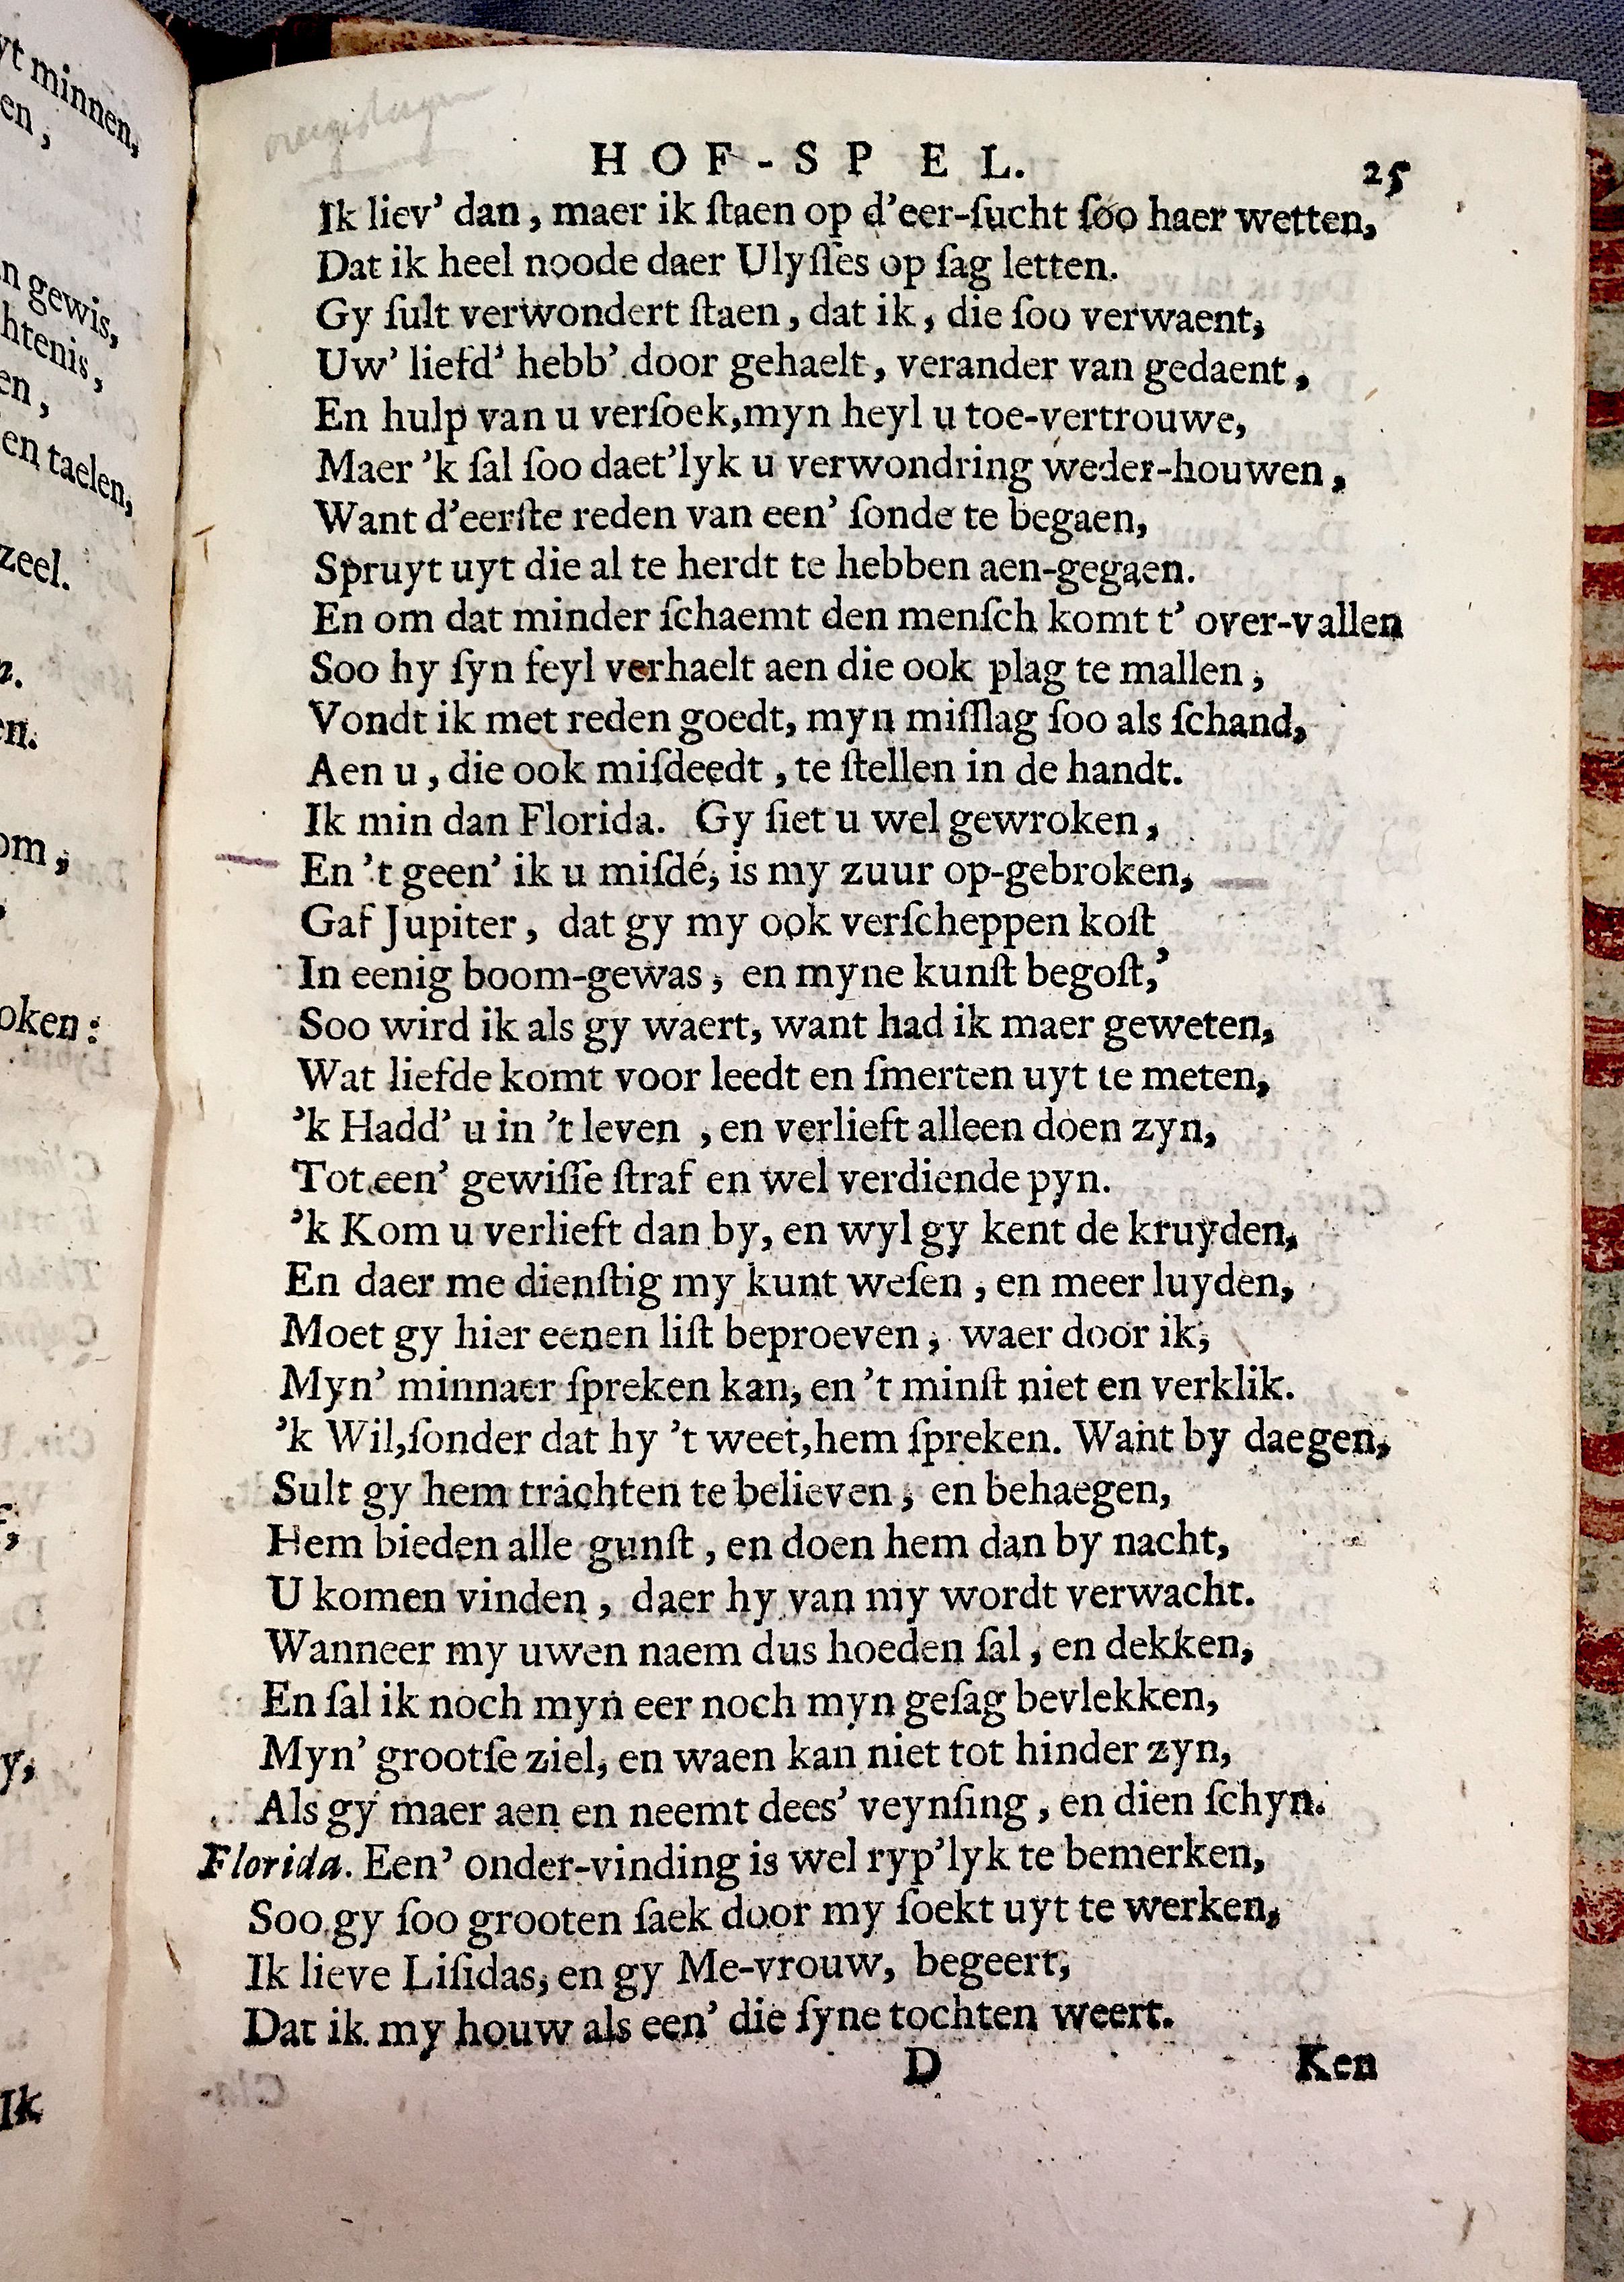 HOF-SPEL. 25
Ik liev’ dan, maer ik ſtaen op d’eer-ſucht ſoo haer wetten,
Dat ik heel noode daer Ulyſſes op ſag letten.
Gy ſult verwondert ſtaen, dat ik, die ſoo verwaent,
Uw’ liefd’ hebb’ door gehaelt, verander van gedaent,
En hulp van u verſoek, myn heyl u toe-vertrouwe,
Maer ’k ſal ſoo daet’lyk u verwondring weder-houwen,
Want d’eerſte reden van een’ ſonde te begaen,
Spruyt uyt die al te herdt te hebben aen-gegaen.
En om dat minder ſchaemt den menſch komt t’ over-vallen
Soo hy ſyn feyl verhaelt aen die ook plag te mallen,
Vondt ik met reden goedt, myn miſſlag ſoo als ſchand,
Aen u, die ook miſdeedt, te ſtellen in de handt.
Ik min dan Florida. Gy ſiet u wel gewroken,
En ’t geen’ ik u miſdé, is my zuur op-gebroken,
Gaf Jupiter, dat gy my ook verſcheppen koſt
In eenig boom-gewas, en myne kunſt begoſt,’
Soo wird ik als gy waert, want had ik maer geweten,
Wat liefde komt voor leedt en ſmerten uyt te meten,
’k Hadd’ u in ’t leven, en verlieft alleen doen zyn,
Tot een’ gewiſſe ſtraf en wel verdiende pyn.
’k Kom u verlieft dan by, en wyl gy kent de kruyden,
En daer me dienſtig my kunt weſen, en meer luyden,
Moet gy hier eenen liſt beproeven, waer door ik,
Myn’ minnaer ſpreken kan, en ’t minſt niet en verklik.
’k Wil, ſonder dat hy ’t weet, hem ſpreken. Want by daegen,
Sult gy hem trachten te believen, en behaegen,
Hem bieden alle gunſt, en doen hem dan by nacht,
U komen vinden, daer hy van my wordt verwacht.
Wanneer my uwen naem dus hoeden ſal, en dekken,
En ſal ik noch myn eer noch myn geſag bevlekken,
Myn’ grootſe ziel, en waen kan niet tot hinder zyn,
Als gy maer aen en neemt dees’ veynſing, en dien ſchyn.
Florida. Een’ onder-vinding is wel ryp’lyk te bemerken,
Soo gy ſoo grooten ſaek door my ſoekt uyt te werken,
Ik lieve Liſidas, en gy Me-vrouw, begeert,
Dat ik my houw als een’ die ſyne tochten weert.
D Ken
yt minnen,
en,
n gewis,
htenis,
en,
en taelen,
zeel.
n.
en.
om,
oken:
y,
Ik